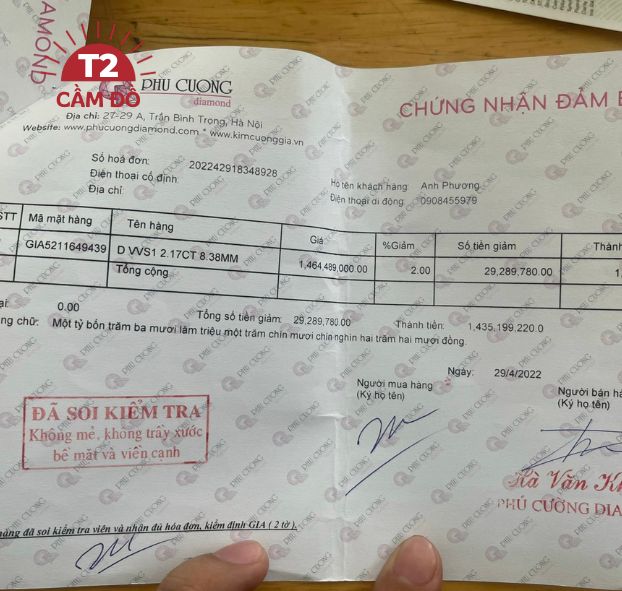 T2
CẦM ĐỒ
DIAMOND
PHU CUONG
diamond
Địa chỉ: 27-29 A, Trần Bình Trọng, Hà Nội
Website: www.phucuongdiamond.com * www.kimcuonggia.vn
CHỨNG NHẬN ĐẢM
Số hoá đơn: 202242918348928
Điện thoại cố định:
Địa chỉ:
Họ tên khách hàng: Anh Phương
Điện thoại di động: 0908455979
STT Mã mặt hàng Tên hàng Giá %Giảm Số tiền giảm Thành
GIA5211649439 D VVS1 2.17CT 8.38MM 1,464,489,000.00 2.00 29,289,780.00 1
Tổng cộng
ại: 0.00 Tổng số tiền giảm: 29,289,780.00 Thành tiền: 1,435,199,220.0
ng chữ: Một tỷ bốn trăm ba mươi lăm triệu một trăm chín mươi chín nghìn hai trăm hai mươi đồng.
Ngày: 29/4/2022
Người mua hàng
(Ký họ tên)
Người bán hà
(Ký họ tên)
ĐÃ SOI KIỂM TRA
Không mẻ, không trầy xước
bề mặt và viền cạnh
Hà Văn Kh
PHÚ CƯỜNG DIA
hàng đã soi kiểm tra viên và nhận đủ hóa đơn, kiểm định GIA ( 2 tờ ).